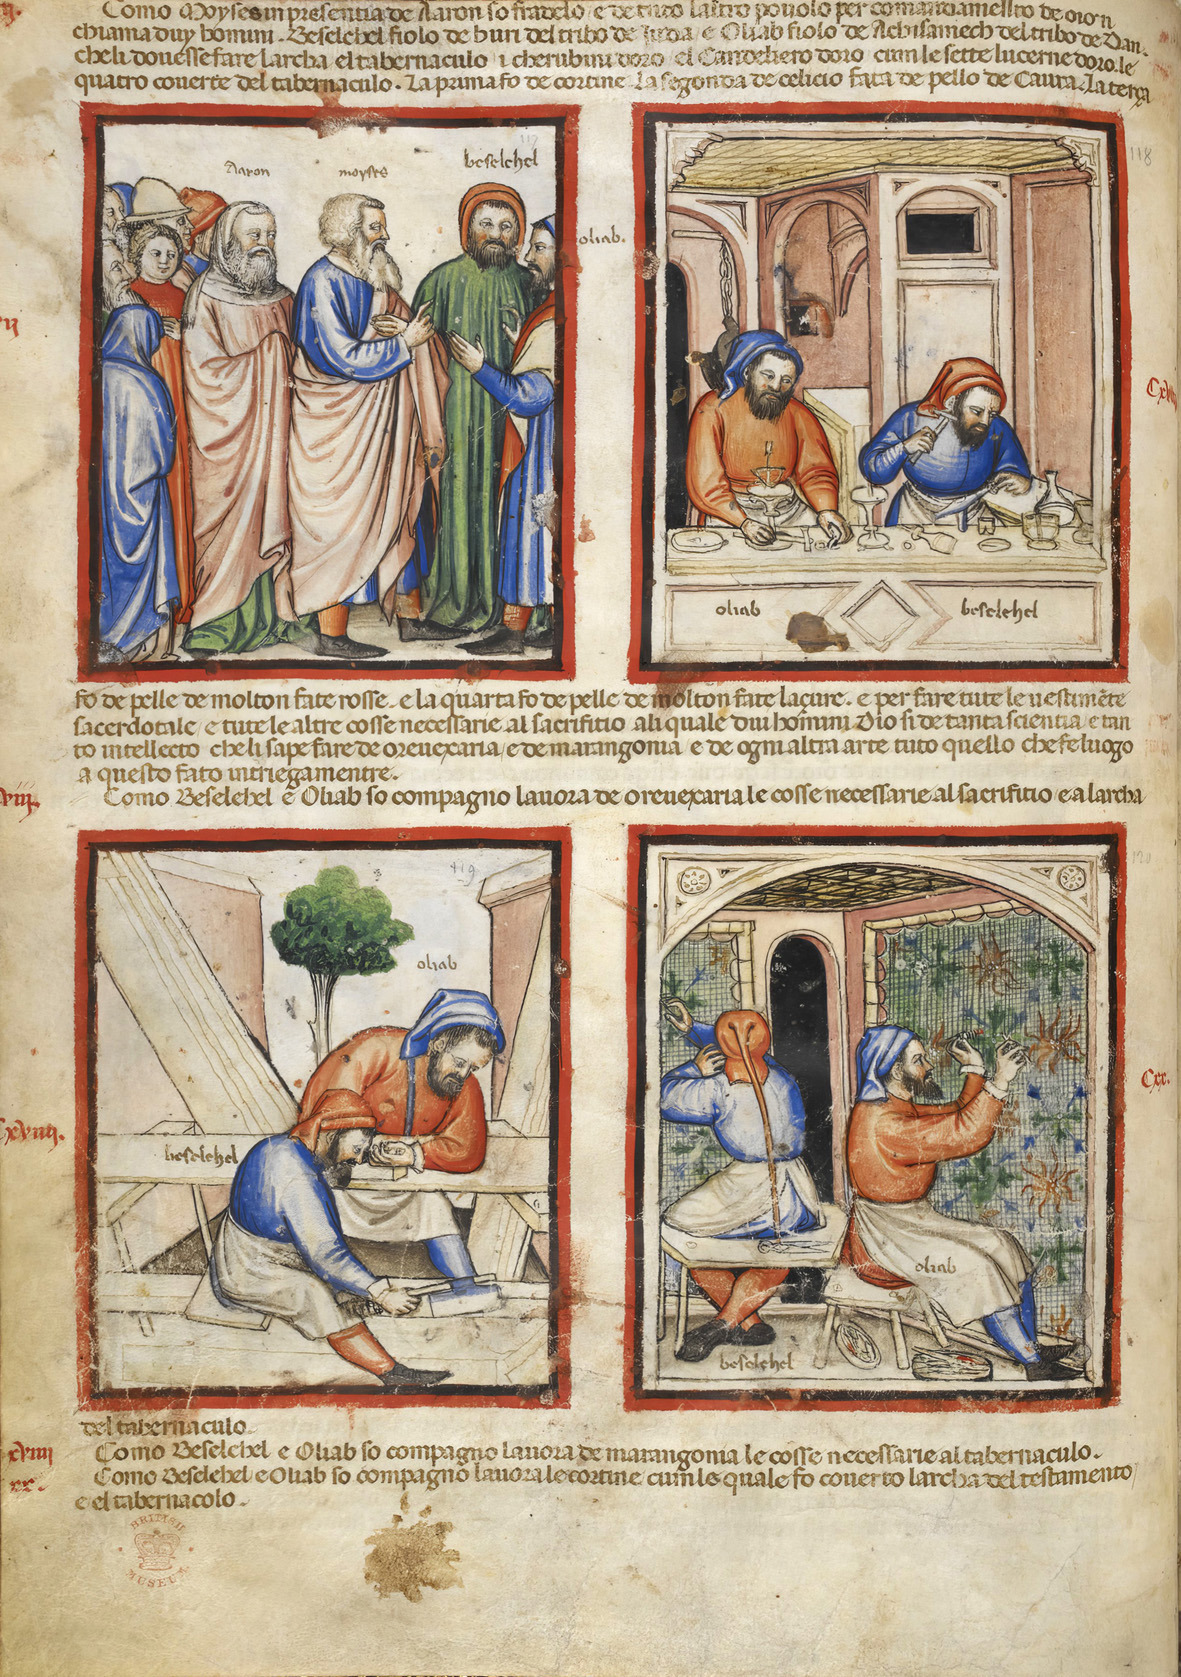 Como Moyses in presentia de Aaron so fradelo / e de tuto laltro pouolo per comandamento de dio
chiama duy homini. Beselehel fiolo de huri del tribo de Juda e Oliab fiolo de Achisamech del tribo de Dan.
che li douesse fare larcha el tabernaculo i cherubini doro el Candelero doro cum le sette lucerne doro. le
quatro couerte del tabernaculo. La prima fo de cortine. La segonda de celicio fata de pello de Caura. La terça
117
Aaron
moyses
beselehel
oliab.
118
oliab
beselehel
fo de pelle de molton fate rosse. e la quarta fo de pelle de molton fate laçure. e per fare tute le uestimēte
sacerdotale / e tute le altre cosse necessarie al sacrifitio ali quale dui homini Dio si de tanta scientia e tan
to intellecto che li sape fare de oreuexaria / e de marangonia e de ogni altra arte tuto quello che fe luogo
a questo fato intriegamentre.
Como Beselehel e Oliab so compagno lauora de oreuexaria le cosse necessarie al sacrifitio e a larcha
119
oliab
beselehel
120
Cxx.
oliab
beselehel
del tabernaculo.
Como Beselehel e Oliab so compagno lauora de marangonia le cosse necessarie al tabernaculo.
Como Beselehel e Oliab so compagno lauora le cortine cum le quale fo couerto larcha del testamento
e el tabernacolo.
BRITISH
MUSEUM